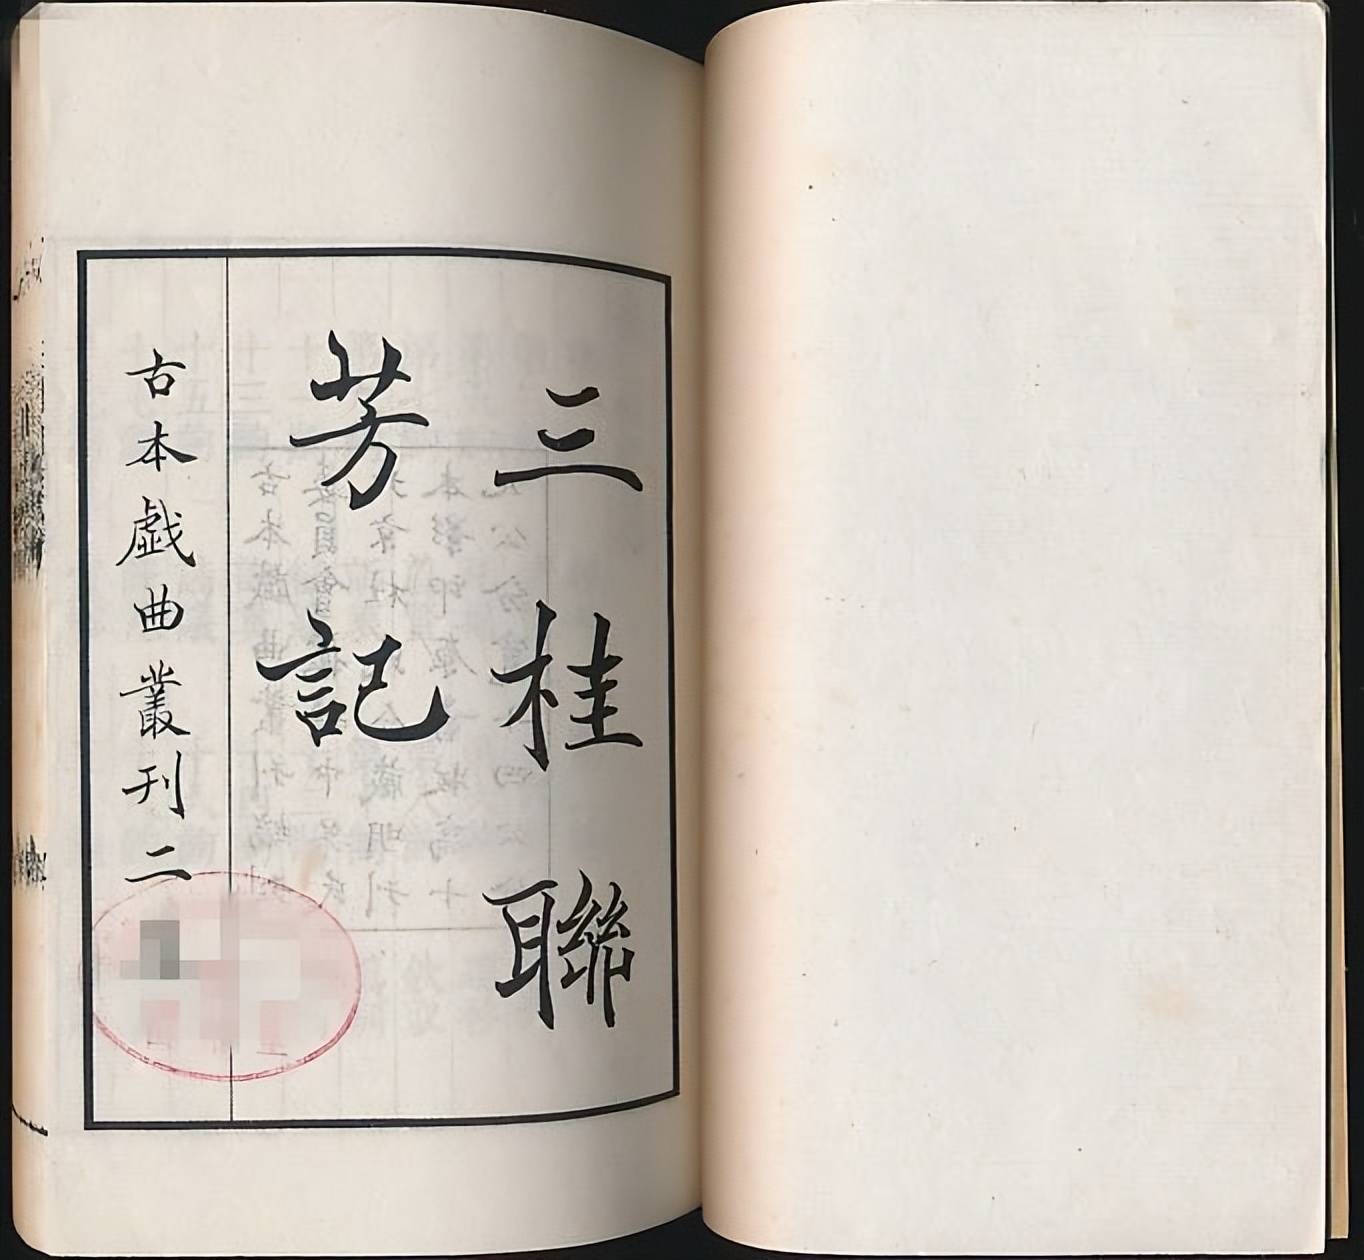 三桂聯
芳記
古本戲曲叢刊二